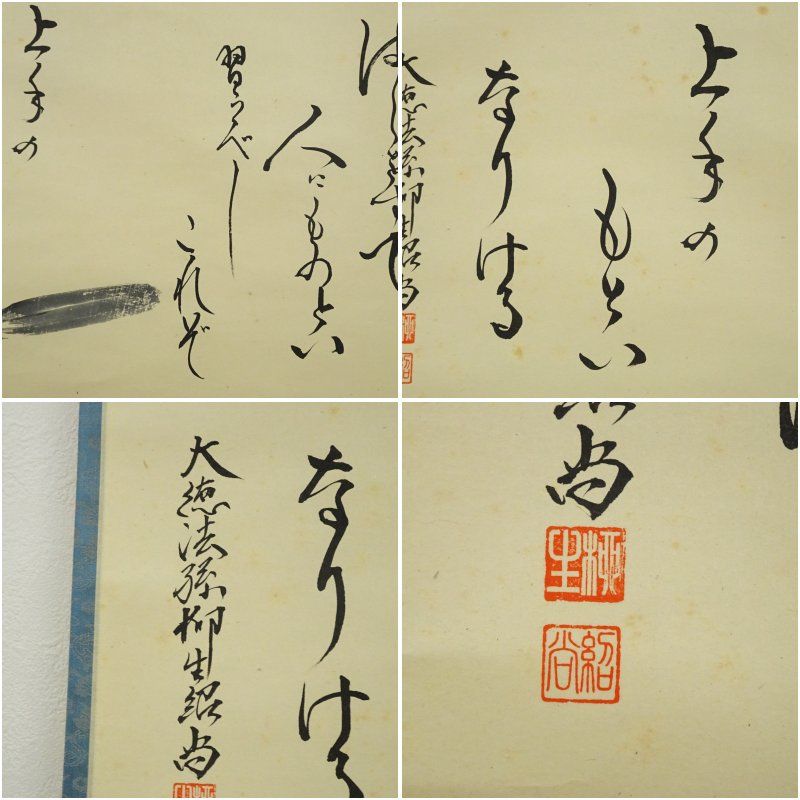 人にものとい
習うべし
これぞ
上手の
上手の
もとい
なりける
大徳法孫柳生紹尚
なりける
大徳法孫柳生紹尚
尚
柳生
紹尚